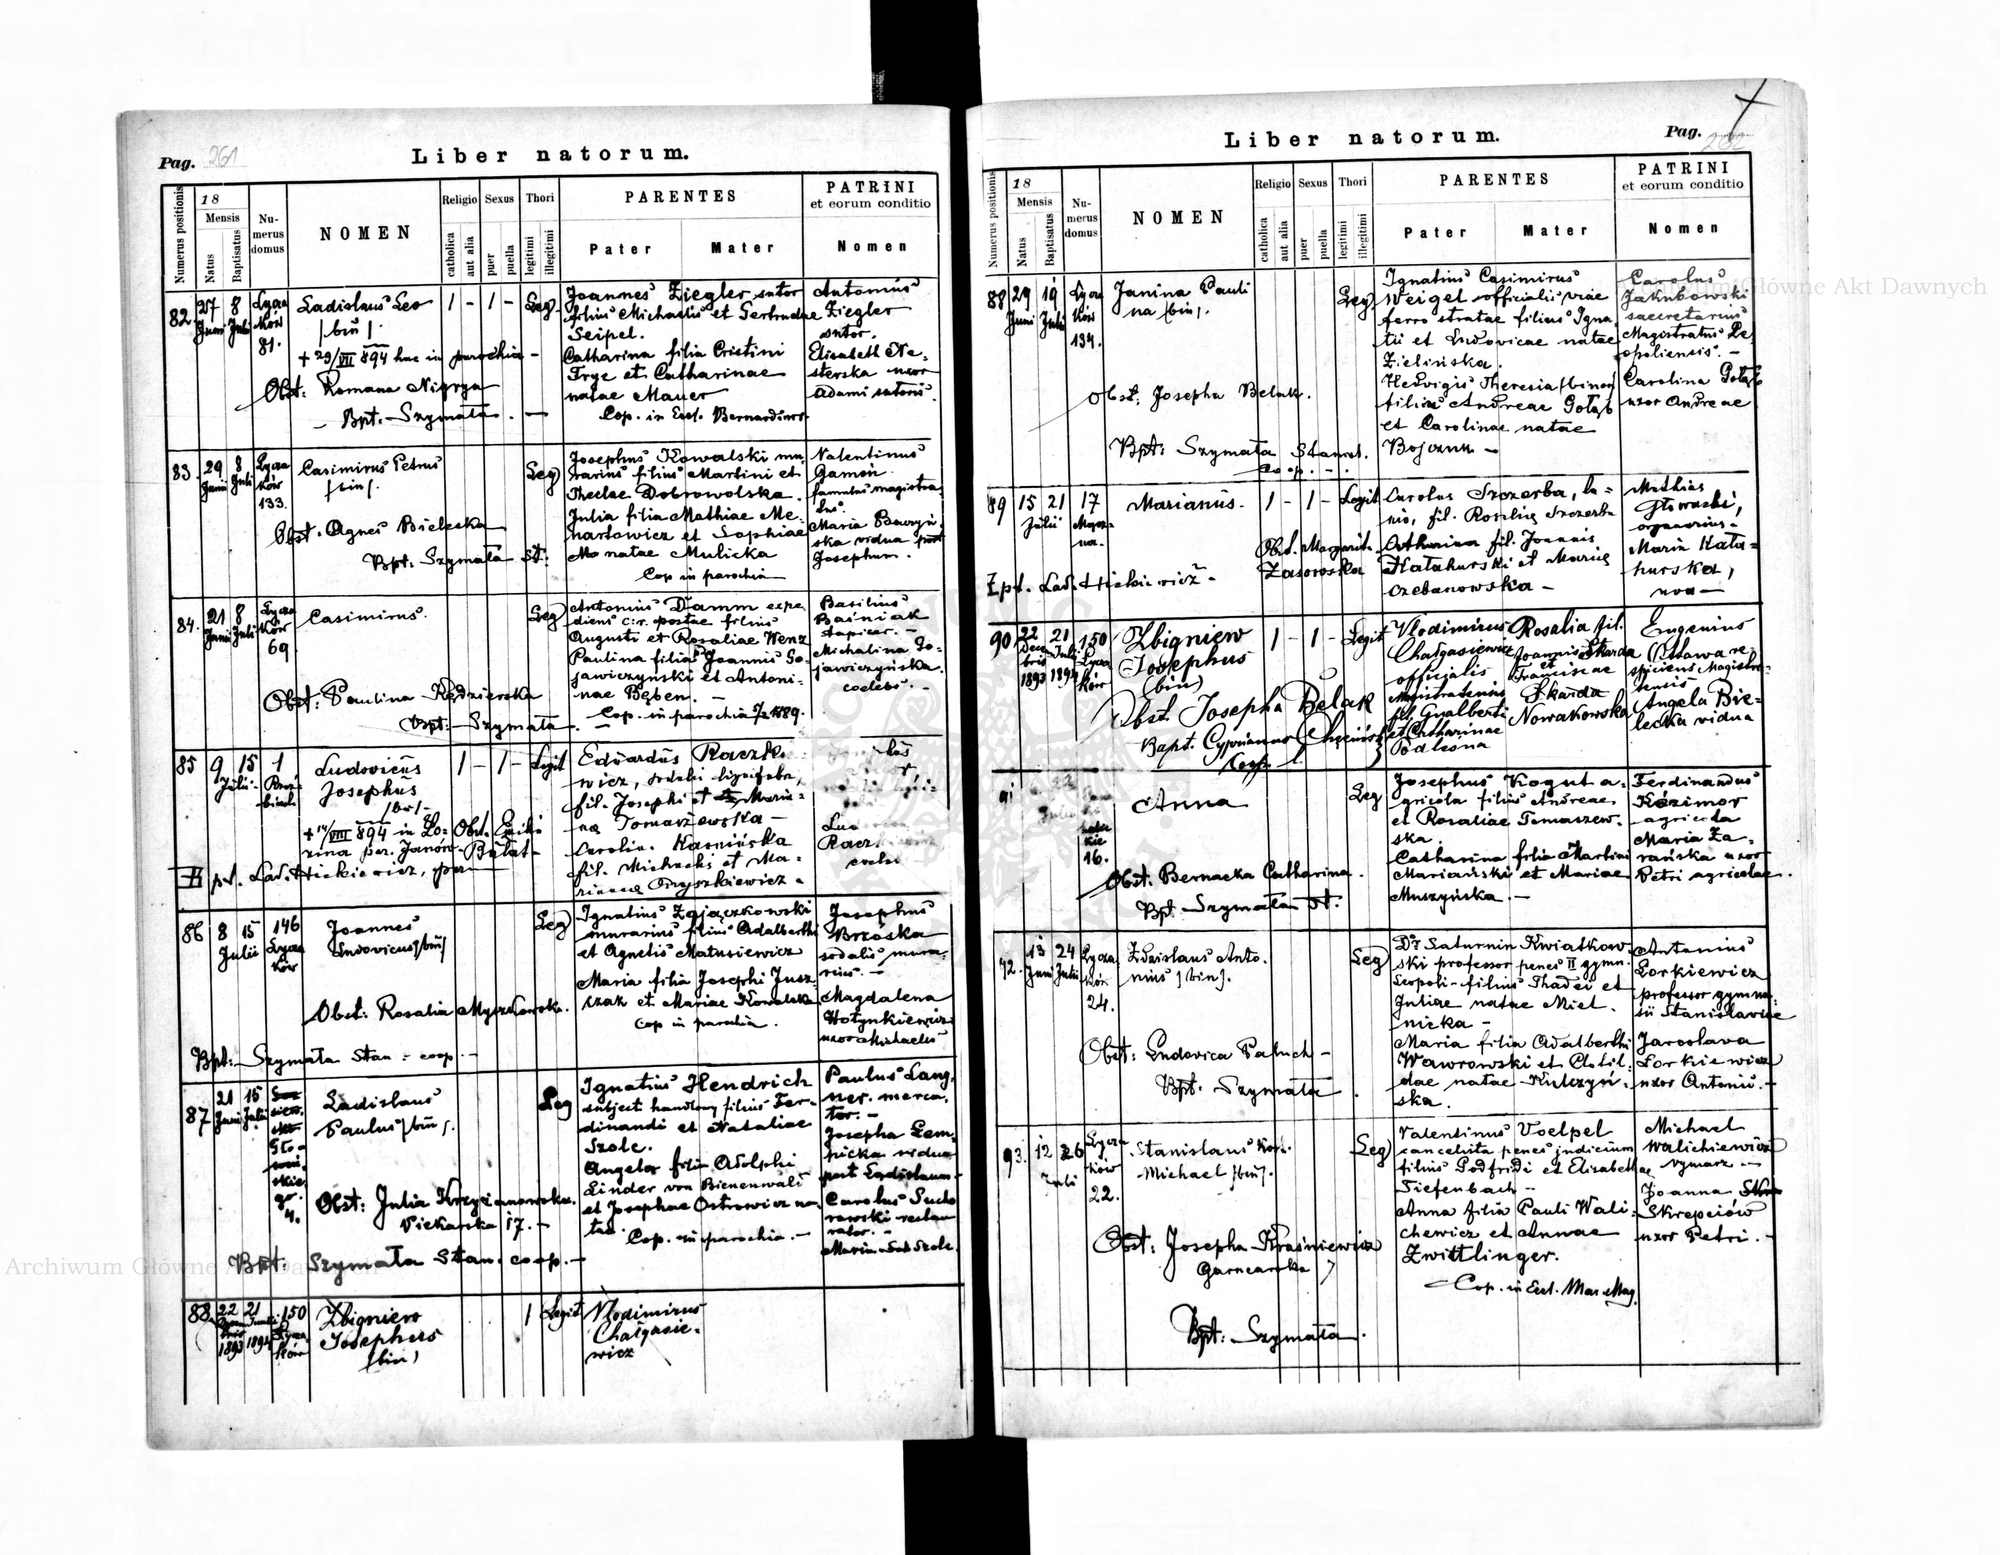 Pag. 261
Liber natorum.
Numerus positionis
18
Mensis
Natus
Baptisatus
Nu-
merus
domus
NOMEN
Religio
catholica
aut alia
Sexus
puer
puella
Thori
legitimi
illegitimi
PARENTES
Pater
Mater
PATRINI
et eorum conditio
Nomen
82
27 Juni
8 Juli
Łycza
ków
81.
Ladislaus Leo
/bin/.
+ 29/VII 894 hac in parochia -
Obst: Romana Nigryn
Bpt. Szymata. -
1 - 1 -
Leg.
Joannes Ziegler sutor
filius Michaelis et Gertrudae
Seipel.
Catharina filia Cristini
Frye et Catharinae
natae Mauer
Cop. in Eccl. Bernardinor.
Antonius
Ziegler
sutor.
Elisabeth Ne-
sterska uxor
Adami sutoris.
83
29 Juni
8 Juli
Łycza
ków
133.
Casimirus Petrus
/bin/.
Obst. Agnes Bielecka
Bpt: Szymata St:
Leg
Josephus Kowalski mu-
rarius filius Martini et
Theclae Dobrowolska.
Julia filia Mathiae Me-
hartowicz et Sophiae
natae Mulicka
Cop in parochia
Valentinus
Gamon
famulus magistra-
tus.
Maria Baczyń-
ska vidua post
Josephum.
84.
21 Juni
8 Juli
Łycza
ków
69
Casimirus.
Obst: Paulina Kędzierska
Bpt: Szymata. -
Leg
Antonius Damm expe-
diens c. r. postae filius
Augusti et Rosaliae Wenz
Paulina filia Joannis Go-
jawiczyński et Antoni-
nae Bęben. -
Cop. in parochia 5/2 1889.
Basilius
Baśniak
tapicer. -
Michalina Go-
jawiczyńska.
coelebs. -
85
9 15
Julii
1
Ludovicus
Josephus
/bin/-
+ 14/VIII 894 in Ło-
zina par. Janów-
Bpt. Lad. Hickiewicz,
1 - 1 -
Legit
Eduardus Raczk-
wicz, sodalis lignifaber,
fil. Josephi et Maria-
nae Tomaszewska -
Carolina Kamińska
fil. Michaeli et Ma-
rianna Onyszkiewicz -
86
8 15
Julii
146
Łycza
ków
Joannes
Ludovicus/bin/
Obst: Rosalia Myszkowska.
Bpt: Szymata Stan - coop. -
Leg
Ignatius Zajączkowski
murarius filius Adalberthi
et Agnetis Matusiewicz
Maria filia Josephi Jusz-
czak et Mariae Kowalska
Cop in parochia.
Josephus
Brzóska
sodalis mura-
rius. -
Magdalena
Hołynkiewicz
uxor Michaelis
87
21 Juni
15 Julii
Gło-
wiń-
skie-
go
4.
Ladislaus
Paulus/bin/.
Obst: Julia Krzyżanowska.
Piekarska 17. -
Bpt: Szymata Stan. coop. -
Leg
Ignatius Hendrich
subject handlowy filius Fer-
dinandi et Nataliae
Szolc.
Angela filia Adolphi
Linder von Bienenwald
et Josephae Ostrowicz na-
tae Cop. in parochia. -
Paulus Lang-
ner. merca-
tor. -
Josepha Lem-
picka vidua
post Ladislaum
Carolus Sucho
rowski restau
rator. -
Maria Szolc.
88
22
1893
21
1894
150
Łycza
ków
Zbigniew
Josephus
/bin/
1 Legit
Vlodimirus
Chałgasie-
wicz
Pag. 262
Liber natorum.
Numerus positionis
18
Mensis
Natus
Baptisatus
Nu-
merus
domus
NOMEN
Religio
catholica
aut alia
Sexus
puer
puella
Thori
legitimi
illegitimi
PARENTES
Pater
Mater
PATRINI
et eorum conditio
Nomen
88
29 Juni
19 Juli
Łycza
ków
134.
Janina Pauli
na /bin/.
Obst: Josepha Belak.
Bpt: Szymata Stanisl.
Coop. -.
Leg.
Ignatius Casimirus
Weigel officialis viae
ferro stratae filius Igna-
tii et Ludovicae natae
Zielińska.
Hedvigis Theresia /binom/
filia Andreae Gołąb
et Carolinae natae
Bojczuk -
Carolus
Jakubowski
secretarius
Magistratus Le-
opoliensis. -
Carolina Gołąb
uxor Andreae
89
15 21
Julii
17
Marianus.
1 - 1 -
Legit
Obst. Margarita
Zasorowska
Bpt. Lad. Hickiewicz -
Carolus Szczerba, la-
nio, fil. Rosaliae Szczerba
Catharina fil. Joannis
Hatahurski et Mariae
Czebanowska -
Mathias
Głowacki,
organarius -
Maria Hata-
hurska,
90
22
Decem
bris
1893
21
Julii
1894
150
Łycza
ków
Zbigniew
Josephus
(bin)
Obst. Josepha Belak
Bapt. Cyprianus Chęciński
Coop.
1 - 1 -
Legit
Vlodimirus
Chałgasiewicz
officialis
Magistratensis
fil. Gualberti
et Catharinae
Podlesna
Rosalia fil.
Joannis Skarda
et
Franciscae
Skarda
Nowakowska
Eugenius
Ottawa re
spiciens Magistra-
tensis
Angela Bie-
lecka vidua
91
16.
Anna
Obst: Bernacka Catharina.
Bpt. Szymata St.
Leg
Josephus Kogut a-
gricola filius Andreae
et Rosaliae Tomaszew-
ska.
Catharina filia Martini
Mariański et Mariae
Muszyńska. -
Ferdinandus
Kazimor
agricola
Maria Za-
rańska uxor
Petri agricolae.
92.
13 Juni
24 Julii
Łycza
ków
24.
Zdzislaus Anto-
nius /bin/.
Obst: Ludovica Paluch -
Bpt. Szymata.
Leg
Dr. Saturnin Kwiatkow-
ski professor penes II gymn.
Leopoli - filius Thadei et
Juliae natae Miel-
nicka -
Maria filia Adalberthi
Wawrowski et Clotil-
dae natae Kulczyń-
ska.
Antonius
Lorkiewicz
professor gymna-
sii Stanislaviae
Jaroslava
Lorkiewicz
uxor Antonii. -
93.
12 26
Juli
Łycza
ków
22.
Stanislaus
Michael /bin/.
Obst: Josepha Kraśniewicz
Garncarska 7
Bpt: Szymata.
Leg
Valentinus Voelpel
cancelista penes judicium
filius Godfridi et Elisabethae
Tiefenbach -
Anna filia Pauli Wali-
chewicz et Annae
Zwittlinger.
- Cop. in Eccl. Mar. Mag.
Michael
Walichiewicz
rymarz -
Joanna
Skrepciów
uxor Petri. -
Archiwum Główne Akt Dawnych
Archiwum Główne Akt Dawnych